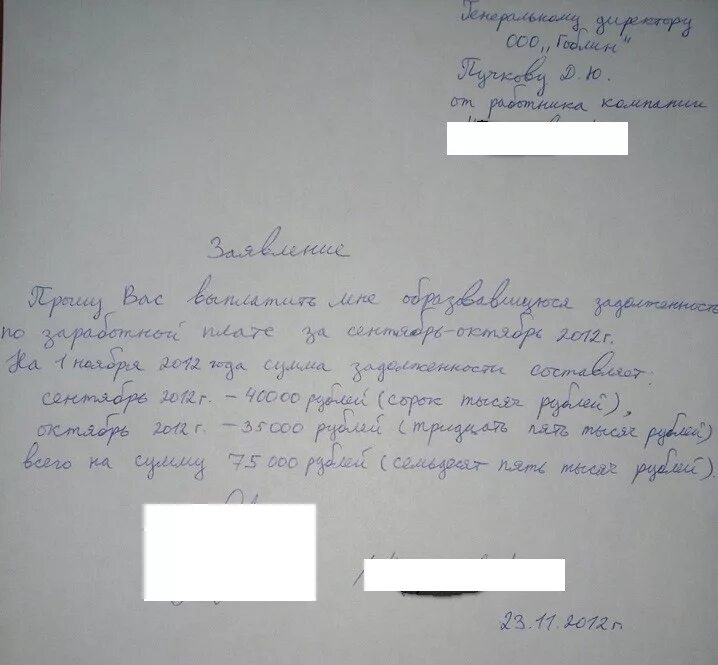 Генеральному директору
ООО „Гоблин"
Пучкову Д.Ю.
от работника компании
Заявление
Прошу Вас выплатить мне образовавшуюся задолженность
по заработной плате за сентябрь-октябрь 2012г.
На 1 ноября 2012 года сумма задолженности составляет:
сентябрь 2012г. – 40000 рублей (сорок тысяч рублей),
октябрь 2012г. – 35000 рублей (тридцать пять тысяч рублей)
всего на сумму 75000 рублей (семьдесят пять тысяч рублей).
23.11.2012г.